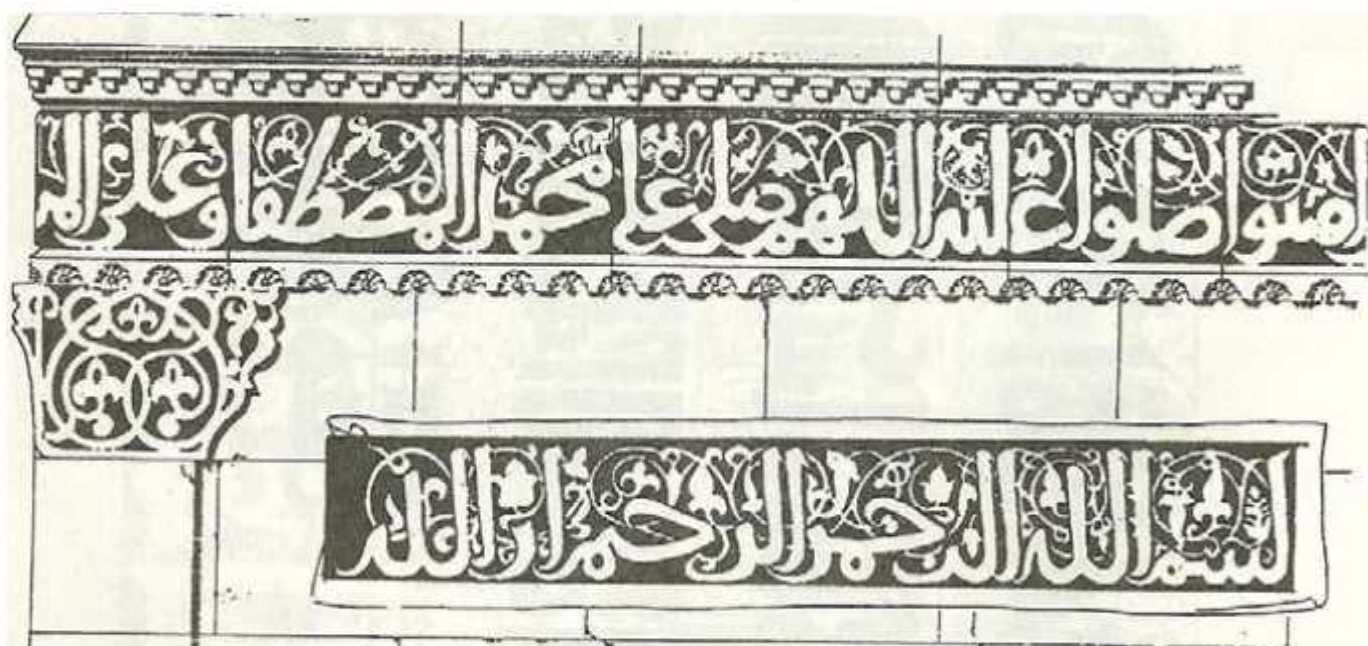 امنوا صلوا عليه اللهم صلى على محمد المصطفا وعلى
بسم الله الرحمن الرحيم ان الله